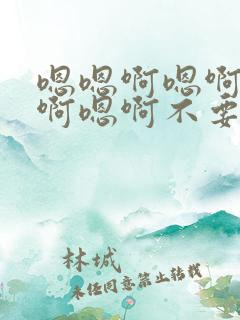 嗯嗯啊嗯啊
啊嗯啊不要
林城
未任同意禁止转载